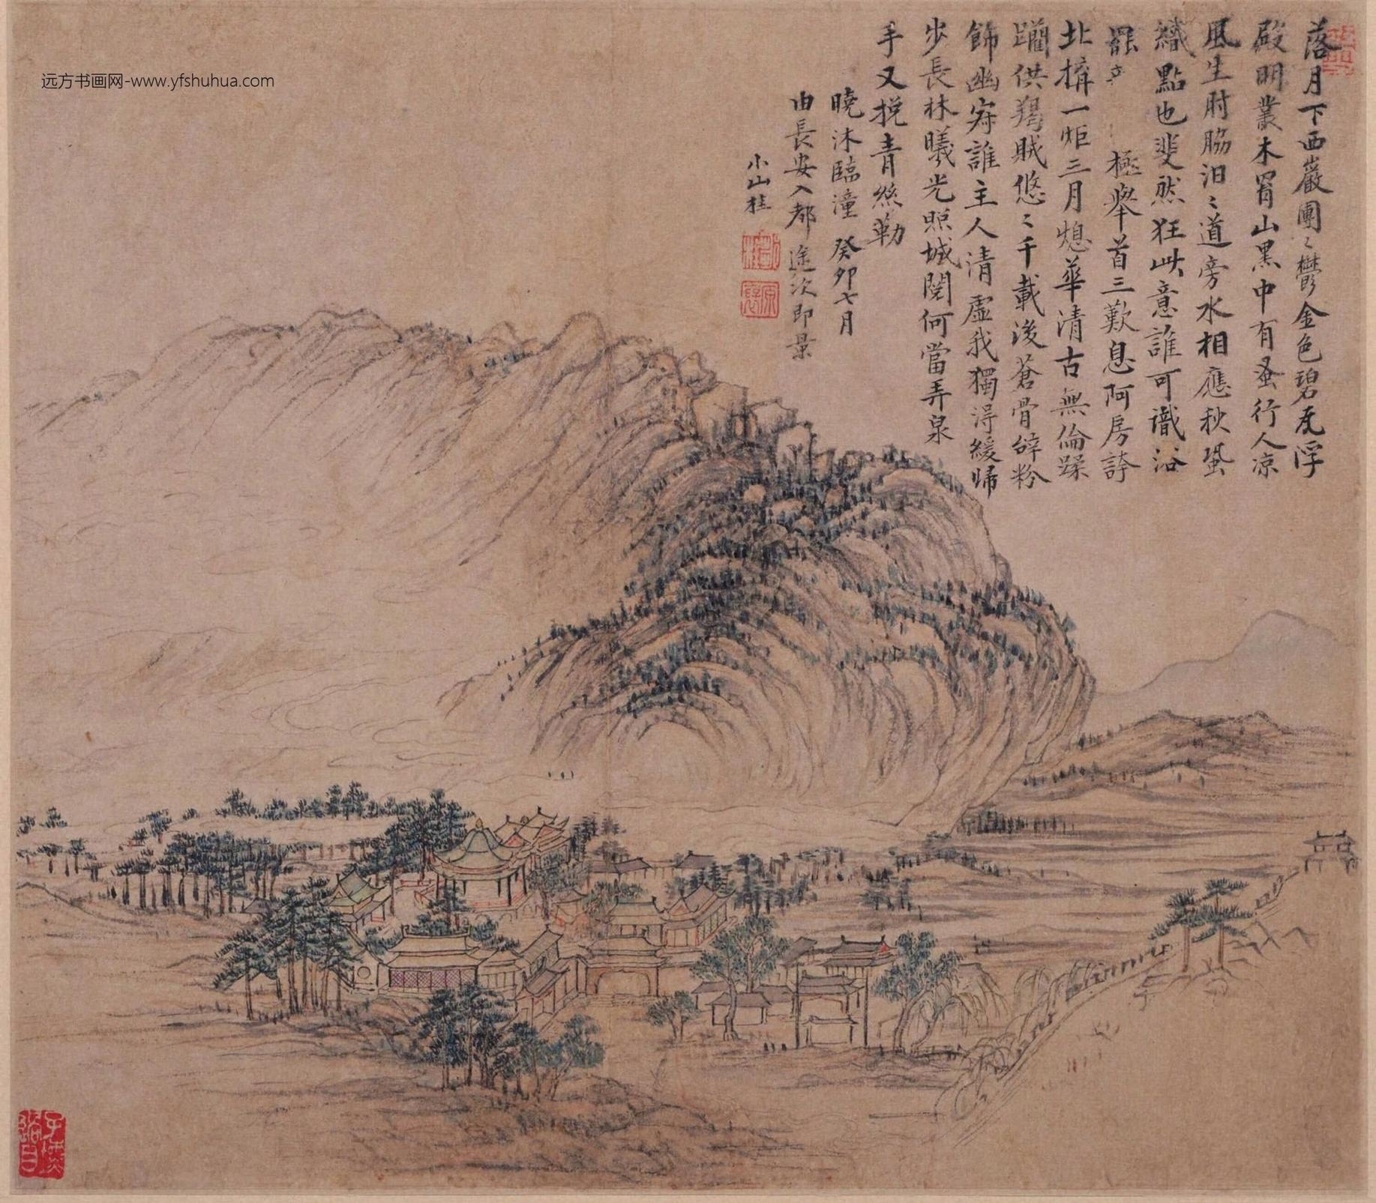 落月下西巖團〻鬱金色碧瓦浮
殿明叢木冐山黑中有蚤行人凉
風生肘脇汨〻道旁水相應秋蛩
織點也斐然狂此意誰可識浴
罷
極舉首三歎息阿房誇
北搆一炬三月熄華清古無倫蹂
躪供羯賊悠〻千載後蒼骨辟粉
飾幽窅誰主人清虛我獨淂緩歸
步長林曦光照城闉何當弄泉
手又挽青絲勒
曉沐臨潼 癸卯七月
由長安入都途次即景
小山桂
远方书画网-www.yfshuhua.com